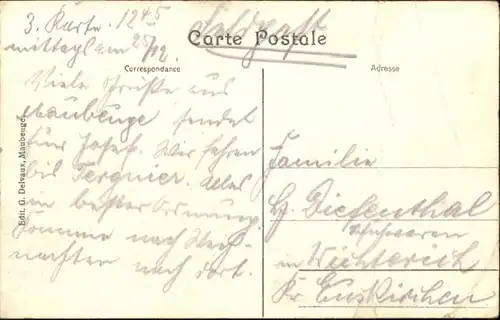 3. Karte. 12⁴⁵
mittags am 25/12.
Feldpost
Carte Postale
Correspondance
Adresse
Viele Grüße aus
Maubeuge sendet
Euer Josef. Wir fahren
bis Tergnier. Alles
in bester Ordnung.
Komme nach Weih-
nachten nach dort.
Edit. G. Delvaux, Maubeuge.
Familie
H. Diefenthal
Schuhwaren
in Wichterich
Kr. Euskirchen